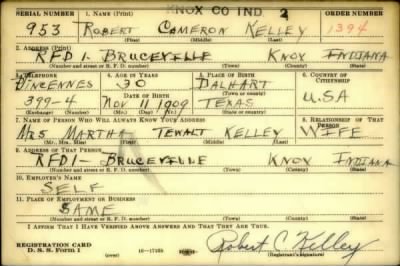 SERIAL NUMBER 1. NAME (Print) KNOX CO IND 2 ORDER NUMBER
953 ROBERT CAMERON KELLEY 1394
(First) (Middle) (Last)
2. ADDRESS (Print)
RFD1- BRUCEVILLE KNOX INDIANA
(Number and street or R. F. D. number) (Town) (County) (State)
3. TELEPHONE 4. AGE IN YEARS 5. PLACE OF BIRTH 6. COUNTRY OF CITIZENSHIP
VINCENNES 30 DALHART
DATE OF BIRTH (Town or county) U.S.A
399-4 NOV 11 1909 TEXAS
(Exchange) (Number) (Mo.) (Day) (Yr.) (State or country)
7. NAME OF PERSON WHO WILL ALWAYS KNOW YOUR ADDRESS 8. RELATIONSHIP OF THAT PERSON
MRS MARTHA TEWALT KELLEY WIFE
(Mr., Mrs., Miss) (First) (Middle) (Last)
9. ADDRESS OF THAT PERSON
RFD1- BRUCEVILLE KNOX INDIANA
(Number and street or R. F. D. number) (Town) (County) (State)
10. EMPLOYER'S NAME
SELF
11. PLACE OF EMPLOYMENT OR BUSINESS
SAME
(Number and street or R. F. D. number) (Town) (County) (State)
I AFFIRM THAT I HAVE VERIFIED ABOVE ANSWERS AND THAT THEY ARE TRUE.
REGISTRATION CARD Robert C. Kelley
D. S. S. FORM 1 (over) (Registrant's signature)